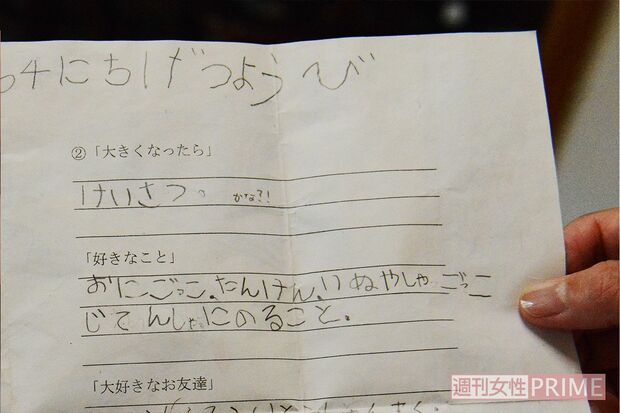 4にちげつようび
②「大きくなったら」
けいさつ。 かな?!
「好きなこと」
おにごっこ、たんけん、いぬやしゃごっこ
じてんしゃにのること。
「大好きなお友達」
週刊女性PRIME